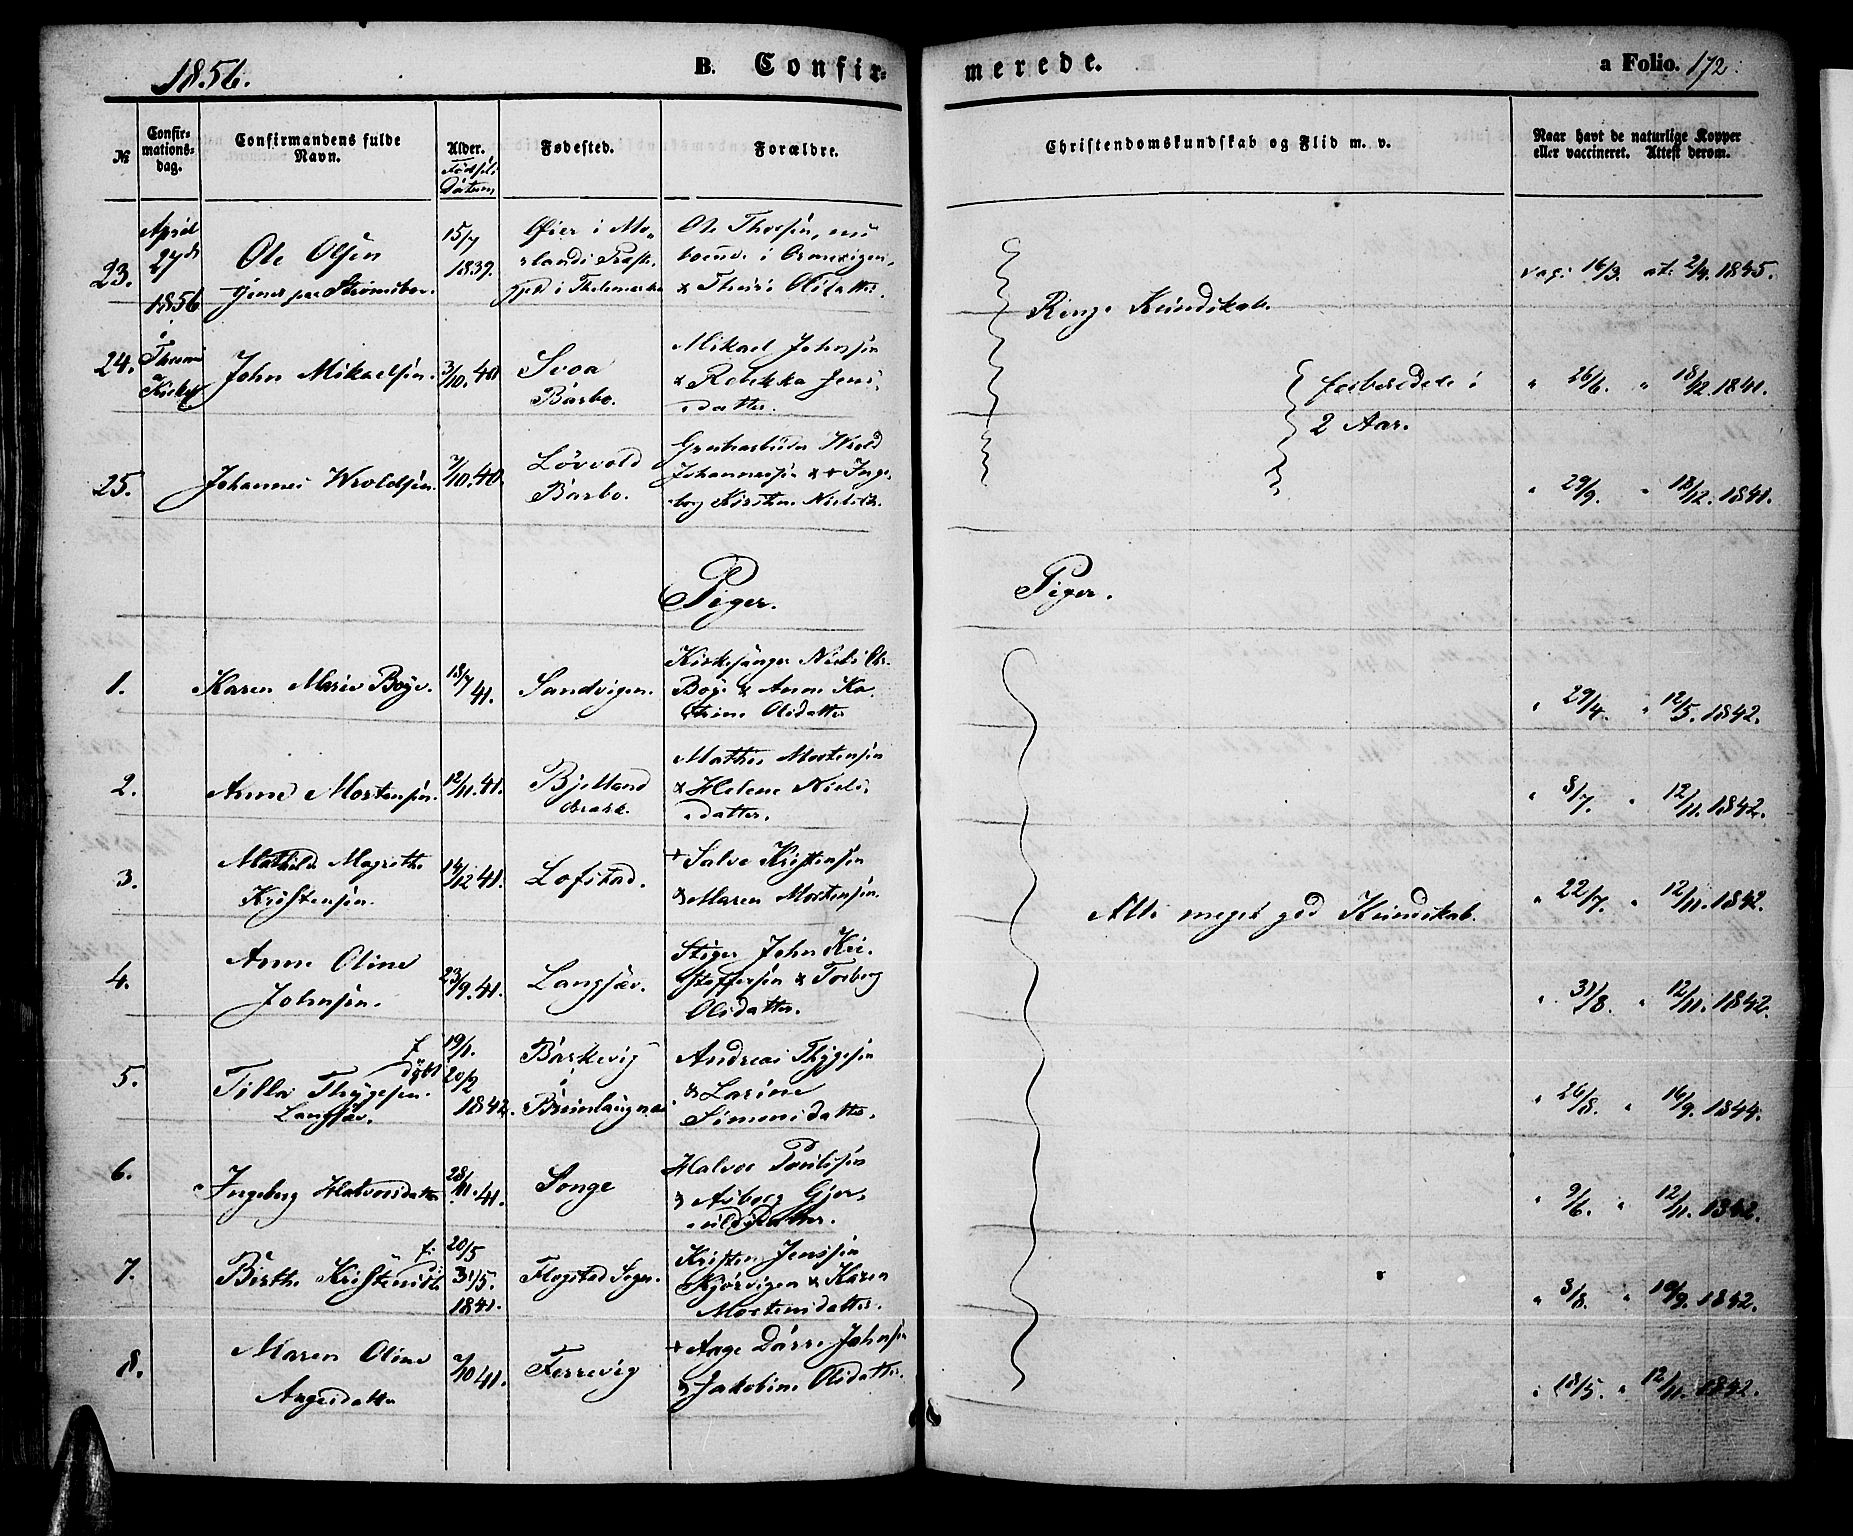 1856.
B. Confir-
merede.
a Folio. 172.
№
Confir-
mations-
dag.
Confirmandens fulde
Navn.
Alder.
Fødsels
Datum
Fødested.
Forældre.
Christendomskundskab og Flid m. v.
Naar havt de naturlige Kopper
eller vaccineret. Attest derom.
23.
April
27de
1856
i
Kirke
Ole Olsen
15/7
1839.
Øier i Mo-
lands Præst.
i Thelemarken
Ole Thorsen, nu
boende i
& Olsdatter.
Ringe Kundskab.
vac: 16/3. at: 2/4. 1845.
24.
John Mikaelsen.
3/10. 40
Svoa
Barbo.
Mikael Johnsen
& Rebekka Jens-
datter.
forberedede i
2 Aar.
" 26/6. " 18/12. 1841.
25.
Johannes Wroldsen.
7/10. 40.
Løvvold
Barbo.
Wrold
Johannessen & + Inge-
borg Kirstine
" 29/9. " 18/12. 1841.
Piger.
Piger.
1.
Karen Marie Boye.
18/7 41.
Sandvigen.
Kirkesanger Niels Chr.
Boye & Anne Ka-
thrine Olsdatter
" 29/4. " 12/5. 1842.
2.
Anne Mortensen.
12/11. 41.
Bjelland
Mathis Mortensen
& Helene Niels-
datter.
" 8/7. " 12/11. 1842.
3.
Mathilde Magrethe
Kristensen.
14/12 41.
Lofstad.
+ Salve Kristensen
& Maren Mortensen.
Alle meget god Kundskab.
" 22/7. " 12/11. 1842.
4.
Anne Oline
Johnsen.
23/9. 41.
Langsæv.
Stiger John Kri-
stoffersen & Torborg
Olsdatter.
" 31/8. " 12/11. 1842.
5.
Tilla Thygesen.
Langsæv.
f. 19/1.
døbt 20/2
1842.
Barkevig
i
Andreas Thygesen
& Larine
Simonsdatter.
" 26/8. " 16/9. 1844.
6.
Ingeborg Halvorsdatter
28/11. 41.
Songe
Halvor Poulsen
& Asborg Gjer-
uldsdatter.
" 9/6. " 12/11. 1842.
7.
Berthe Kristensdtr
f. 20/5
31/5.
1841.
Flogstad
Kristen Jenssen
Kjørvigen & Karen
Mortensdatter.
" 3/8. " 10/9. 1842.
8.
Maren Oline
Aagesdatter
2/10 41.
Ferrevig
+ Aage Johnsen
& Jakobine Olsdatter.
" 18/5. " 12/11. 1842.